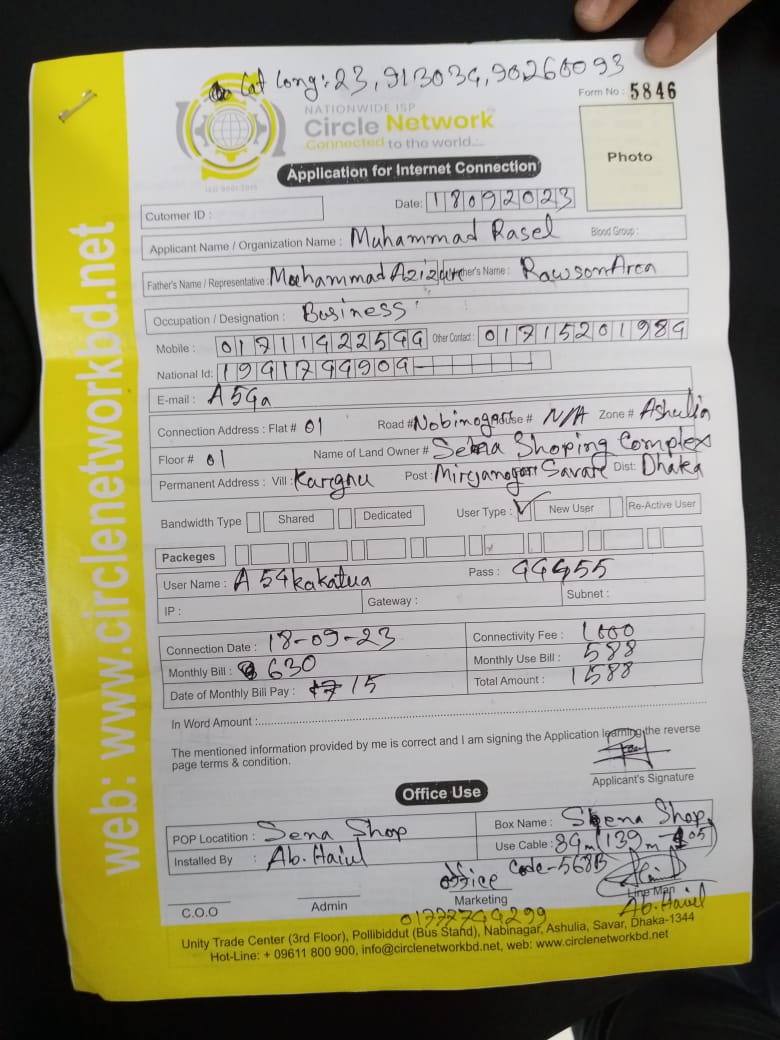 Lat Long: 23,913034,90260093
NATIONWIDE ISP
Circle Network
Connected to the world...
ISO 9001:2015
Form No : 5846
Photo
Application for Internet Connection
Date: 18092023
Cutomer ID :
Applicant Name / Organization Name : Muhammad Rasel Blood Group :
Father's Name / Representative : Mohammad Azizur Mother's Name : RawsonArea
Occupation / Designation : Business
Mobile : 01711422544 Other Contact : 01715201984
National Id: 1941744904
E-mail : A54a
Connection Address : Flat # 01 Road # Nobinogar House # N/A Zone # Ashulia
Floor # 01 Name of Land Owner # Sena Shoping Complex
Permanent Address : Vill : Post : Savar Dist: Dhaka
Bandwidth Type Shared Dedicated User Type : ✓ New User Re-Active User
Packeges
User Name : A54kakatua Pass : 44455
IP : Gateway : Subnet :
Connection Date : 18-09-23 Connectivity Fee : 1000
Monthly Bill : 630 Monthly Use Bill : 588
Date of Monthly Bill Pay : 15 Total Amount : 1588
In Word Amount :
The mentioned information provided by me is correct and I am signing the Application learning the reverse
page terms & condition.
Applicant's Signature
Office Use
POP Locatition : Sena Shop Box Name : Sena Shop
Installed By : Ab. Haiul Use Cable : 89m/139m
office Code-568B
C.O.O Admin Marketing Line Man
01777749299 Ab. Haiul
Unity Trade Center (3rd Floor), Pollibiddut (Bus Stand), Nabinagar, Ashulia, Savar, Dhaka-1344
Hot-Line: + 09611 800 900, info@circlenetworkbd.net, web: www.circlenetworkbd.net
web: www.circlenetworkbd.net